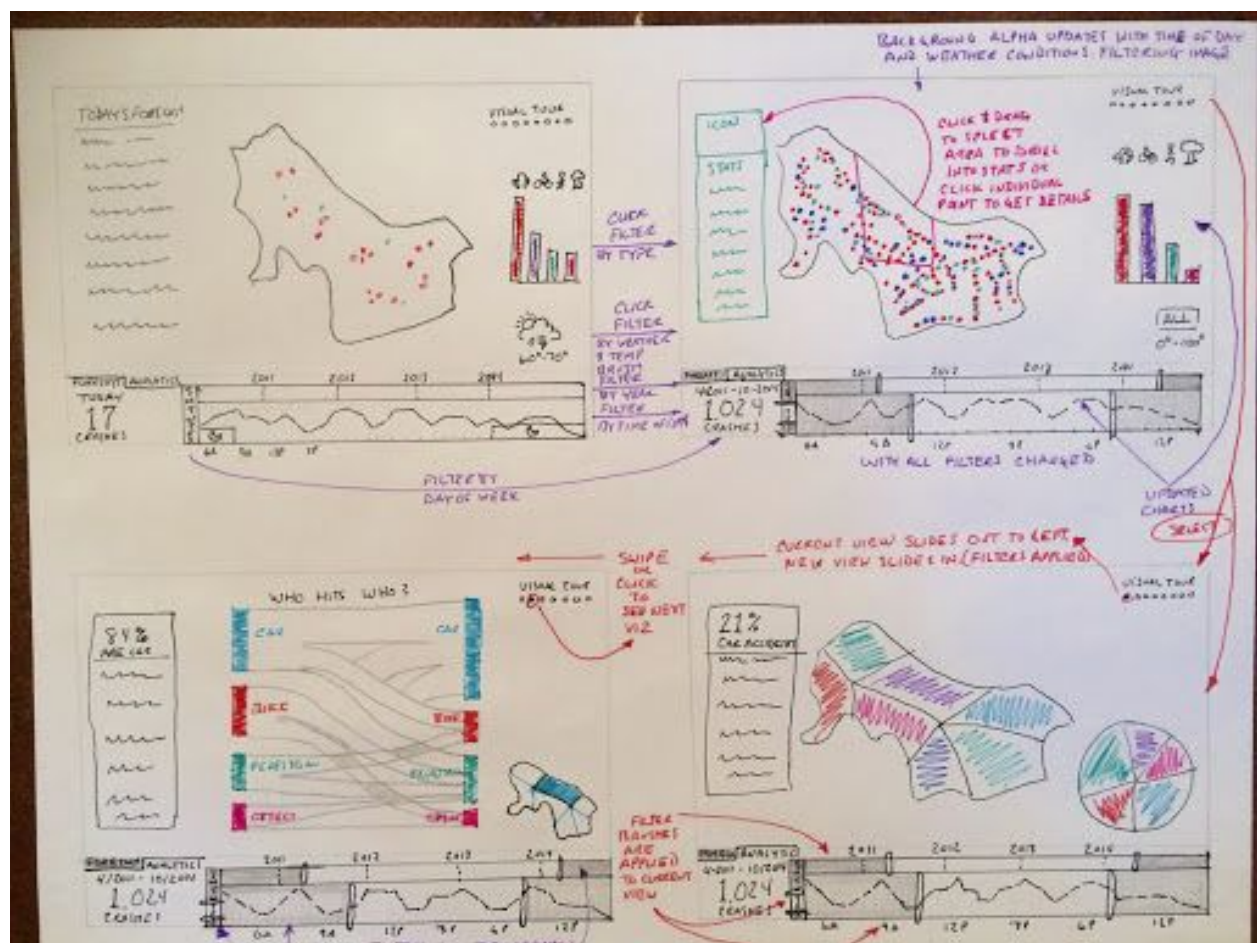 BACKGROUND ALPHA UPDATES WITH TIME OF DAY
AND WEATHER CONDITIONS FILTERING IMAGE
TODAYS FORECAST
VISUAL TOUR
60°-70°
FORECAST ANALYTICS
TODAY
17
CRASHES
2011 2012 2013 2014
6A 9A 12P 3P
CLICK
FILTER
BY TYPE
CLICK
FILTER
BY WEATHER
& TEMP
BRUSH
FILTER
BY YEAR
FILTER
BY TIME WIDTH
FILTER BY
DAY OF WEEK
ICON
STATS
CLICK & DRAG
TO SELECT
AREA TO DRILL
INTO STATS OR
CLICK INDIVIDUAL
POINT TO GET DETAILS
VISUAL TOUR
ALL
0°-100°
ANALYTICS
4/2011-10/2014
1,024
CRASHES
2011 2012 2013 2014
6A 9A 12P 3P 6P 12P
WITH ALL FILTERS CHANGED
UPDATED
CHARTS
SELECT
SWIPE
OR
CLICK
TO
SEE NEXT
VIZ
CURRENT VIEW SLIDES OUT TO LEFT
NEW VIEW SLIDES IN (FILTERS APPLIED)
WHO HITS WHO?
VISUAL TOUR
84%
ARE CAR
CAR CAR
BIKE BIKE
PEDESTRIAN
OBJECT
FORECAST ANALYTICS
4/2011-10/2014
1,024
CRASHES
2011 2012 2013 2014
6A 9A 12P 3P 6P 12P
FILTER
BRUSHES
ARE
APPLIED
TO CURRENT
VIEW
VISUAL TOUR
21%
CAR ACCIDENT
ANALYTICS
4/2011-10/2014
1,024
CRASHES
2011 2012 2013 2014
6A 9A 12P 3P 6P 12P